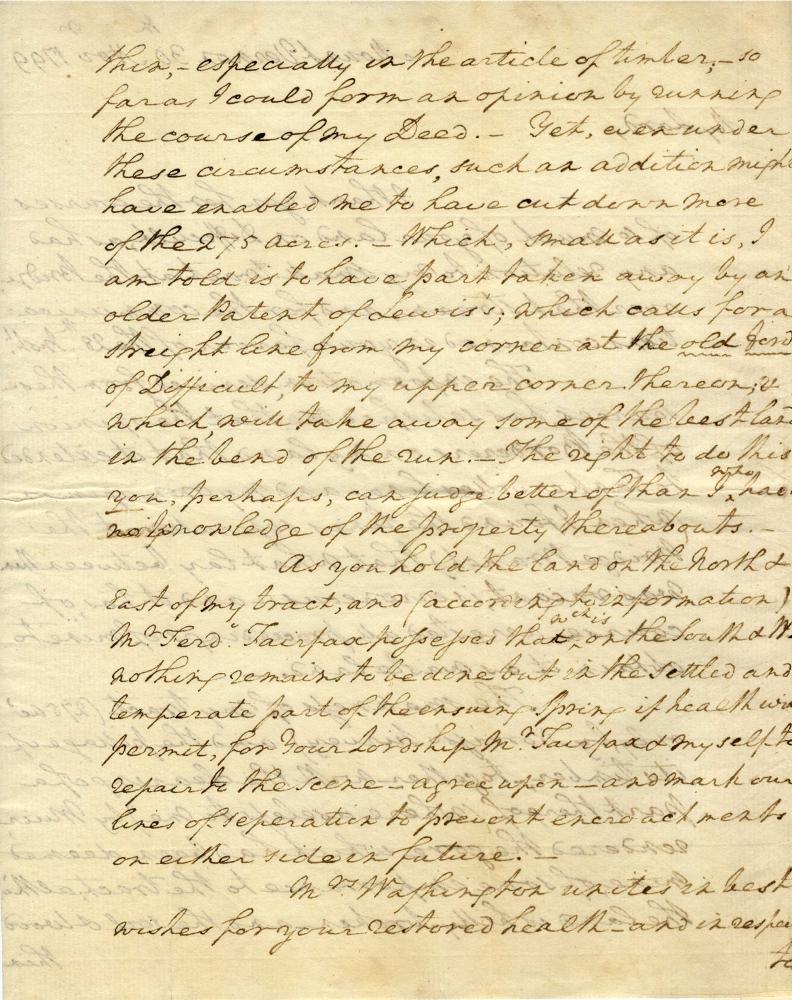 thin,- especially in the article of timber;- so
far as I could form an opinion by running
the course of my Deed.- Yet, even under
these circumstances, such an addition might
have enabled me to have cut down more
of the 275 acres.- Which, small as it is, I
am told is to have part taken away by an
older Patent of Lewis's; which calls for a
streight line from my corner at the old ford
of Difficult, to my upper corner thereon; &
which, will take away some of the best land
in the bend of the run.- The right to do this
you, perhaps, can judge better of than I, who have
no knowledge of the property thereabouts.-
As you hold the land on the North &
East of my tract, and (according to information)
Mr. Ferdo. Fairfax possesses that, wch is on the South & W.
nothing remains to be done but in the settled and
temperate part of the ensuing Spring if health will
permit, for Your Lordship Mr. Fairfax & myself to
repair to the scene - agree upon - and mark our
lines of seperation to prevent encroachments
on either side in future.-
Mrs. Washington unites in best
wishes for your restored health - and in respec
to